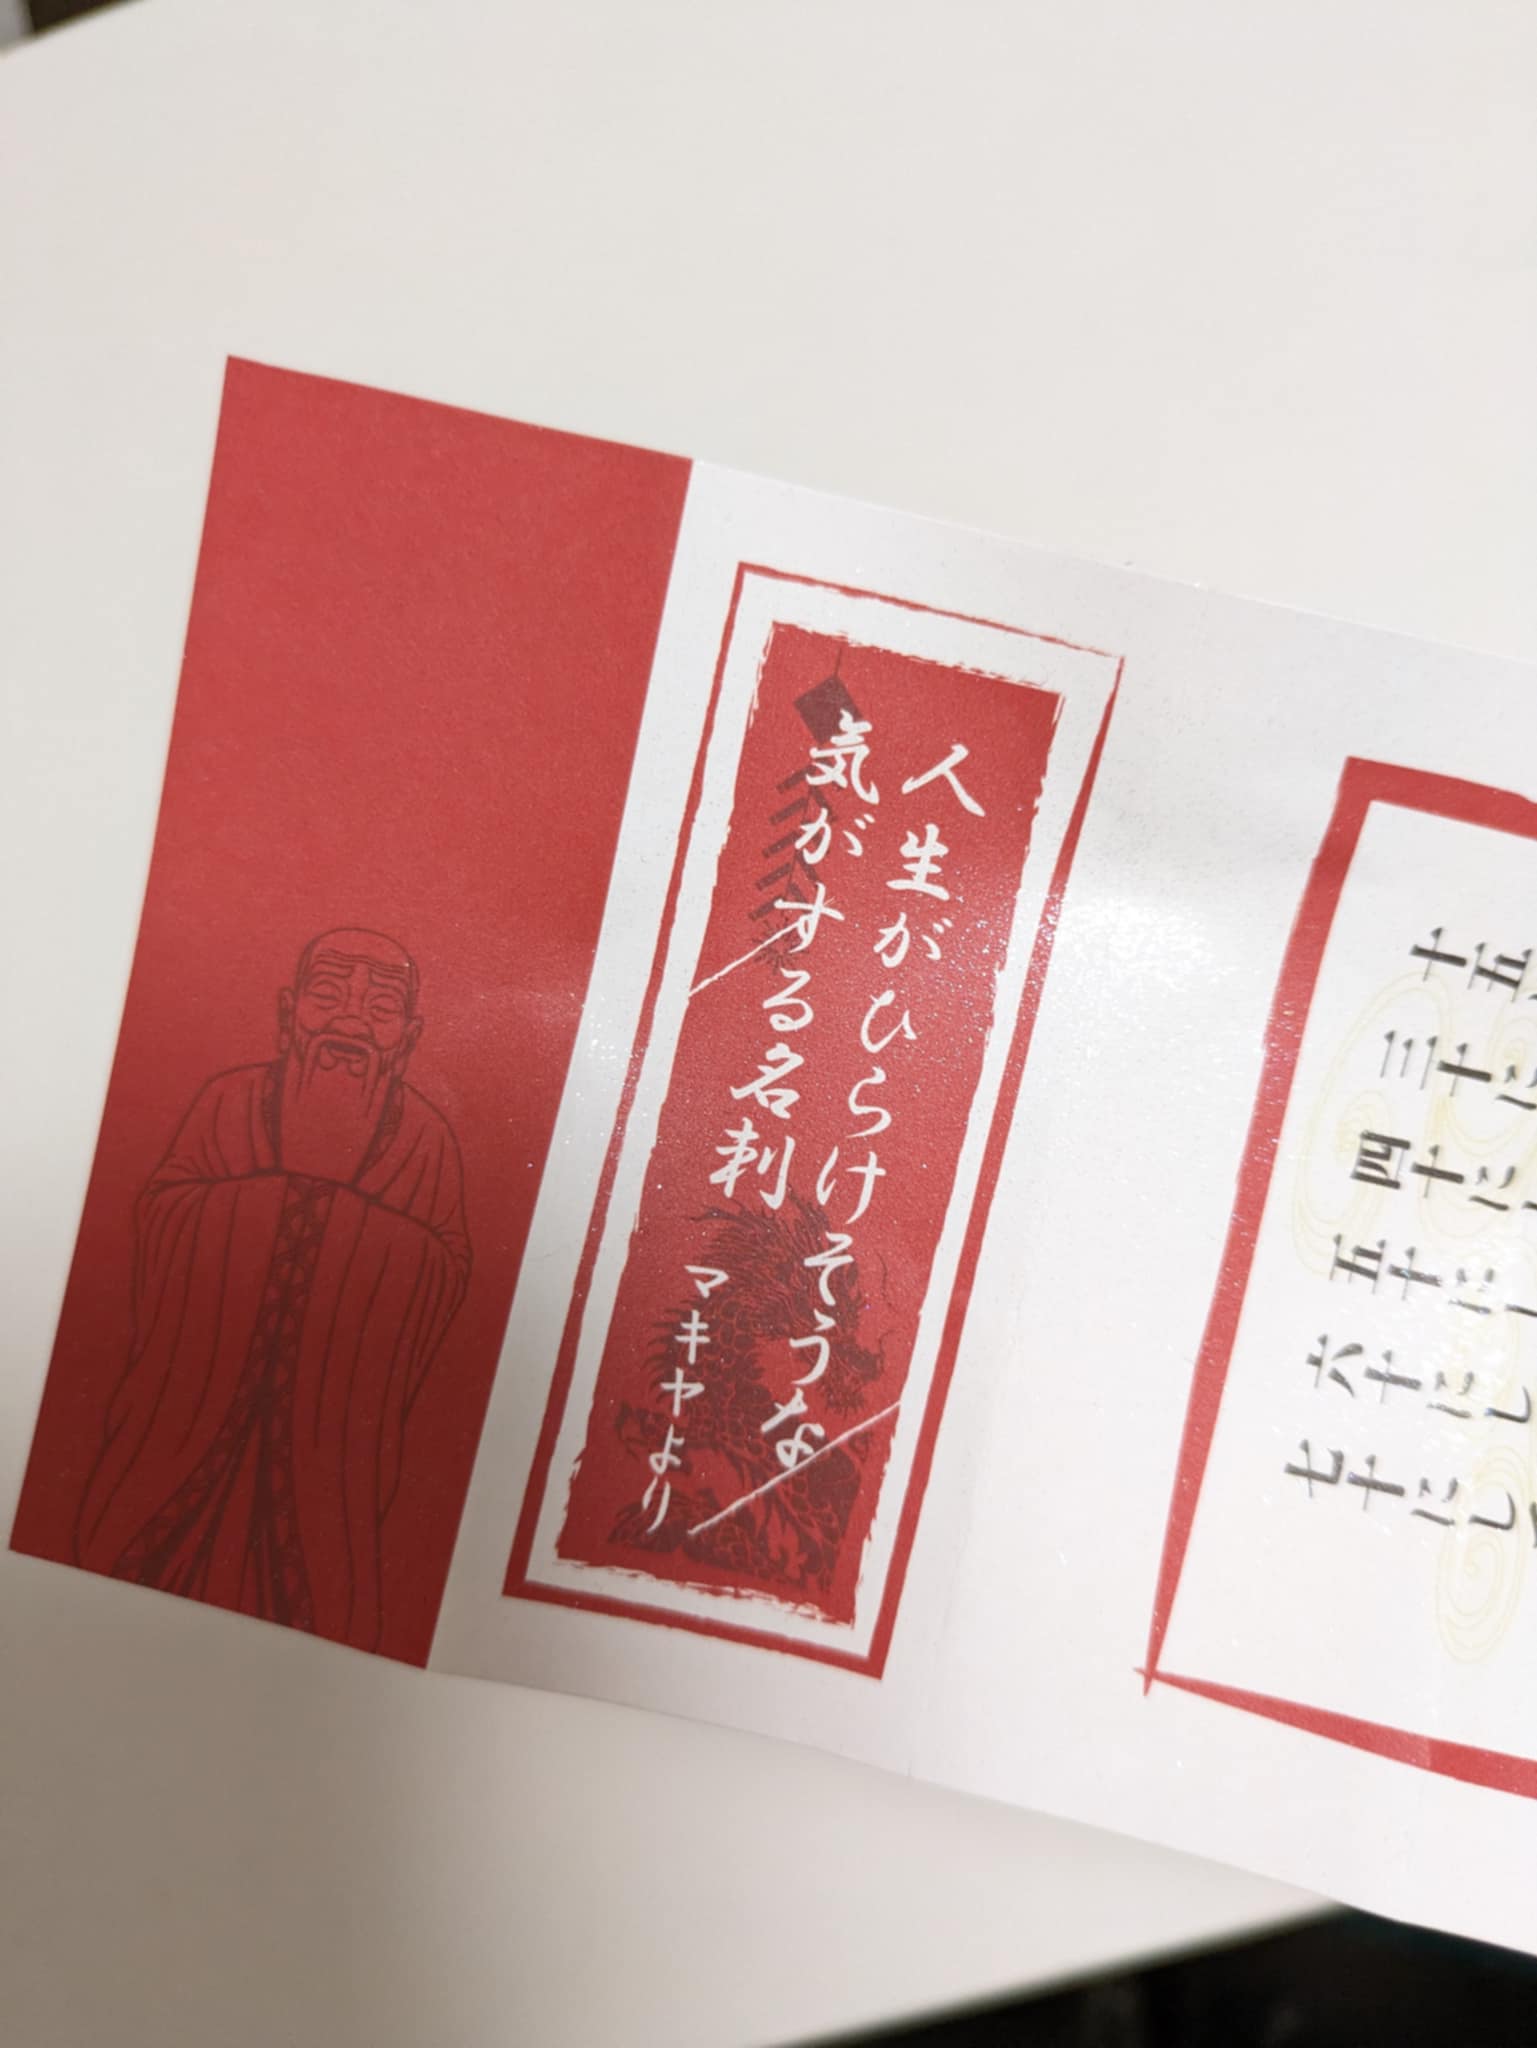 人生がひらけそうな
気がする名刺
マキヤより
五
十五
三十に
四十に
五十に
六十にし
七十にし